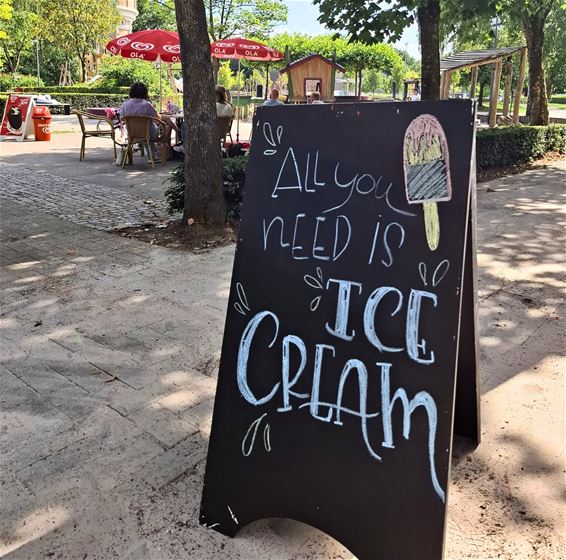 OLA
OLA
ALL you
NEED iS
ICE
CREAM